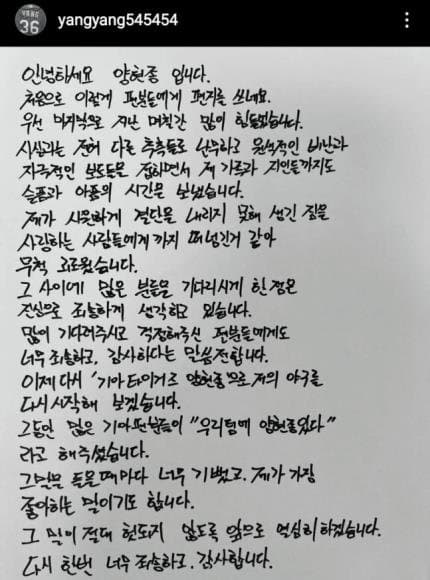 yangyang545454
36
안녕하세요 양현종 입니다.
처음으로 이렇게 팬분들에게 편지를 쓰네요.
우선 마지막으로 지난 며칠간 많이 힘들었습니다.
사실과는 전혀 다른 추측들로 난무하고 원색적인 비난과
자극적인 보도들을 접하면서 제 가족과 지인들까지도
슬픔과 아픔의 시간을 보냈습니다.
제가 시원하게 결단을 내리지 못해 생긴 짐을
사랑하는 사람들에게 까지 떠넘긴거 같아
무척 괴로웠습니다.
그 사이에 많은 분들을 기다리시게 한 점은
진심으로 죄송하게 생각하고 있습니다.
많이 기다려주시고 걱정해주신 팬분들에게도
너무 죄송하고, 감사하다는 말씀전합니다.
이제 다시 '기아타이거즈 양현종'으로 저의 야구를
다시 시작해 보겠습니다.
그동안 많은 기아팬분들이 "우리팀에 양현종있다"
라고 해주셨습니다.
그말을 들을때마다 너무 기뻤고, 제가 가장
좋아하는 말이기도 합니다.
그 말이 절대 헛되지 않도록 앞으로 열심히하겠습니다.
다시 한번 너무 죄송하고, 감사합니다.